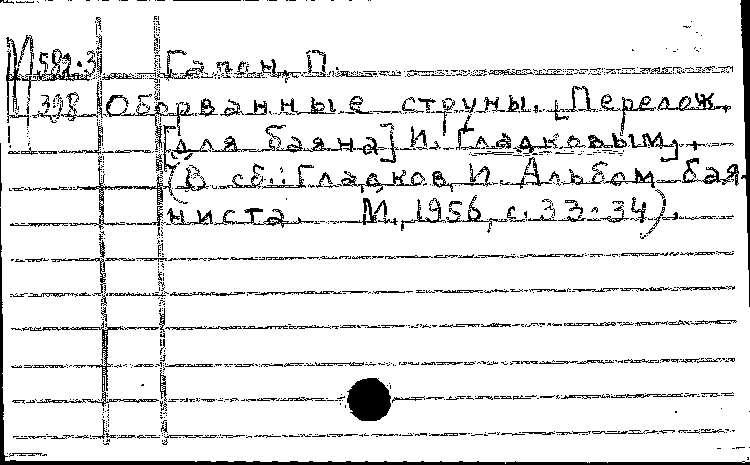 М 582-3 Гапон, П.
398 Оборванные струны. [Перелож.
[для баяна] И. Гладковым].
(В сб.: Гладков, И. Альбом бая-
ниста. М., 1956, с. 33-34).